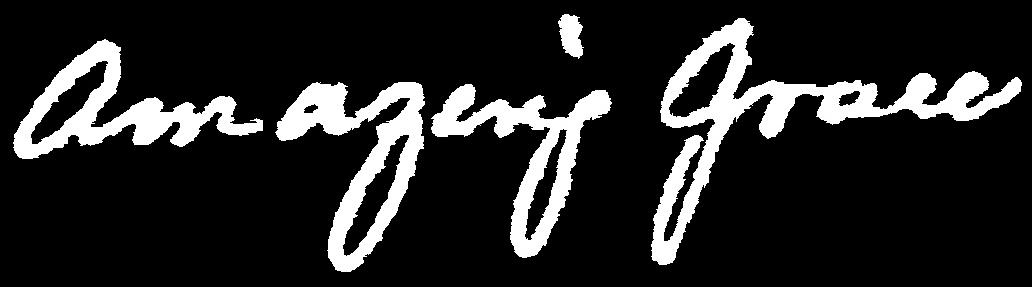 Amazing Grace